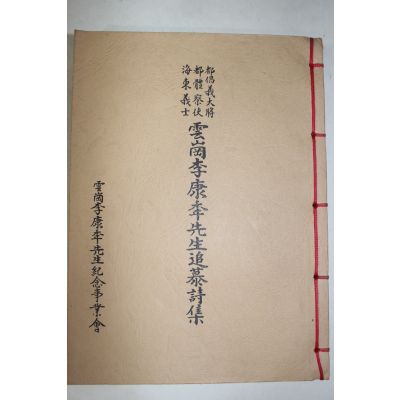 都倡義大將
都體察使
海東義士
雲崗李康秊先生追慕詩集
雲崗李康秊先生紀念事業會